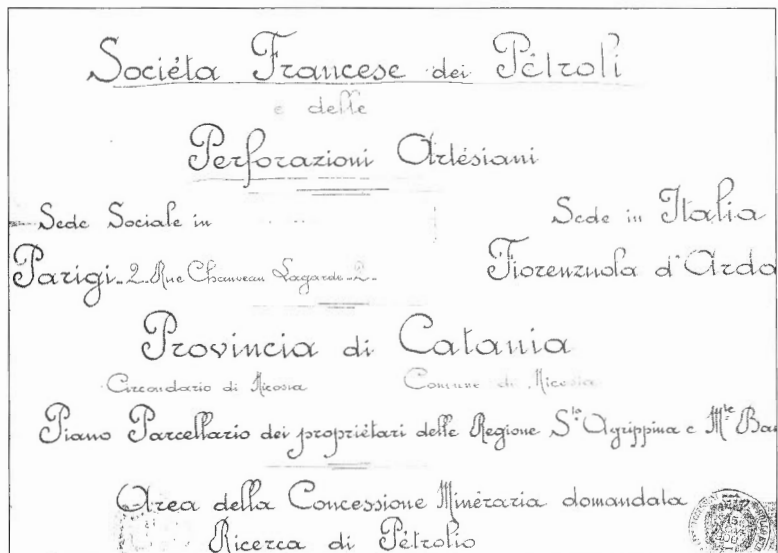 Sociéta Francese dei Pétroli
e delle
Perforazioni Artésiani
Sede Sociale in
Sede in Italia
Parigi. 2. Rue Chauveau Lagarde. 2.
Fiorenzuola d'Arda
Provincia di Catania
Circondario di Nicosia
Comune di Nicosia
Piano Parcellario dei propriétari delle Regione Sta Agrippina e Mte Ba
Area della Concessione Minéraria domandata
Ricerca di Pétrolio